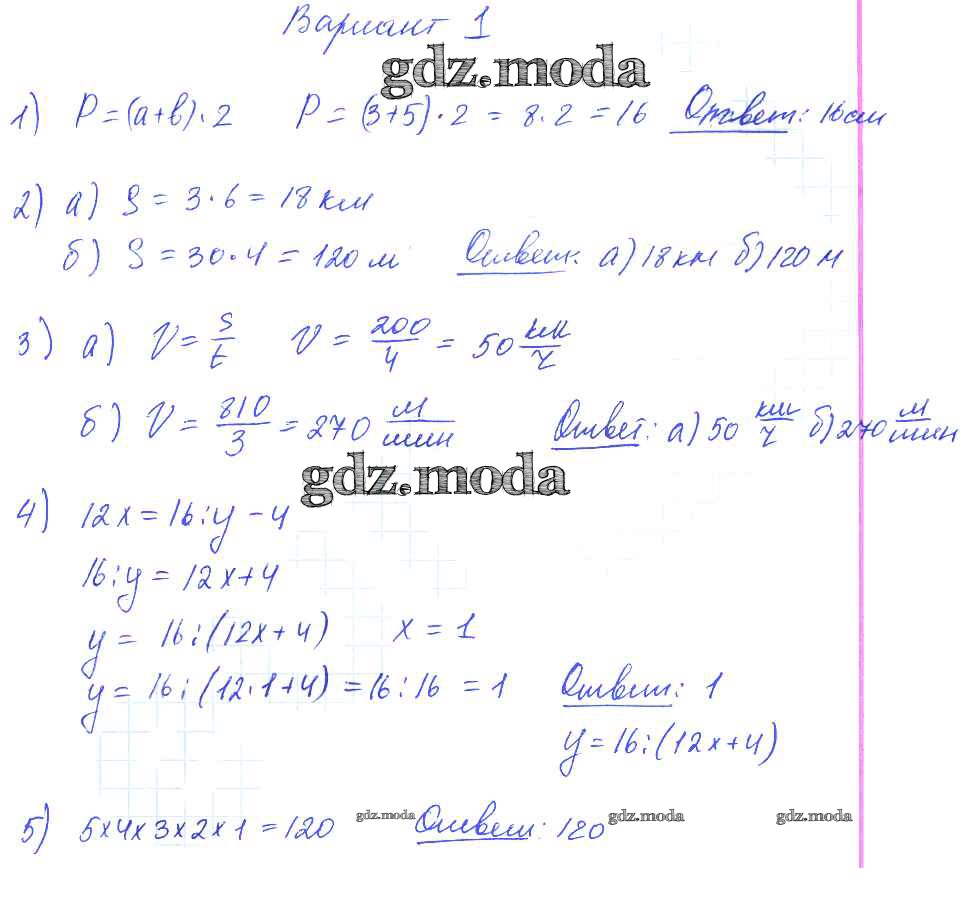 Вариант 1
gdz.moda
1) P=(a+b)·2 P=(3+5)·2=8·2=16 Ответ: 16см
2) а) S=3·6=18 км
б) S=30·4=120 м Ответ: а) 18 км б) 120 м
3) а) V=S/t V=200/4=50 км/ч
б) V=810/3=270 м/мин Ответ: а) 50 км/ч б) 270 м/мин
gdz.moda
4) 12x=16:y-4
16:y=12x+4
y=16:(12x+4) x=1
y=16:(12·1+4)=16:16=1 Ответ: 1
y=16:(12x+4)
5) 5x4x3x2x1=120 gdz.moda Ответ: 120 gdz.moda gdz.moda